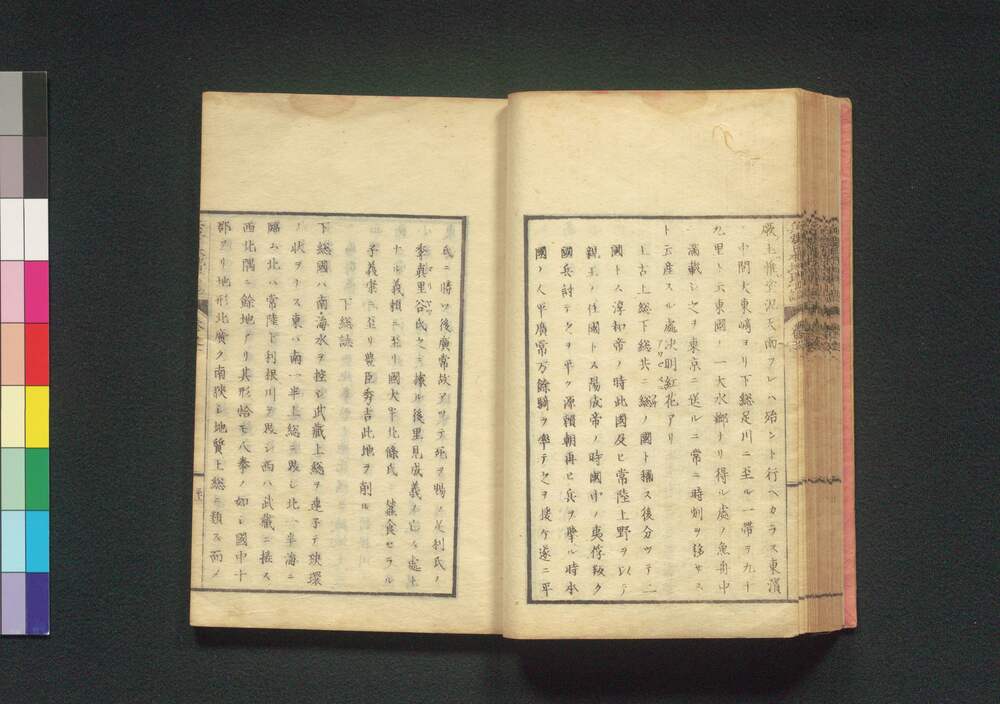 厥土惟塗泥天雨フレハ殆ント行ヘカラス東濱
中間大東崎ヨリ下総足川ニ至ル一帯ヲ九十
九里ト云東國ノ一大水郷ナリ得ル處ノ魚舟中
ニ滿載シ之ヲ東京ニ送ルニ常ニ時刻ヲ移サス
ト云産スル處決明紅花アリ
上古上総下総共ニ総ノ國ト稱ス後分ツテ二
國トス淳和帝ノ時此國及ヒ常陸上野ヲ以テ
親王ノ任國トス陽成帝ノ時國中ノ夷俘叛ク
國兵討テ之ヲ平ツ源頼朝再ヒ兵ヲ擧ル時本
國ノ人平廣常万餘騎ヲ率テ之ヲ援ケ遂ニ平
氏ニ勝ツ後廣常故アツテ死ヲ賜ノ足利氏ノ
季真里谷氏之ニ據ル後里見成義ノ
ナル義頼ニ至リ國大半北條氏ニ蠶食セラル
子義康ニ至リ豊臣秀吉此地ヲ削ル
下総誌
下総國ハ南海水ヲ控ヘ武藏上総ヲ連子テ玦環
ノ状ヲナス東ハ南一半上総ニ跨シ北一半海ニ
臨ム北ハ常陸ト利根川ヲ界シ西ハ武藏ニ接ス
西北隅ニ餘地アリ其形恰モ人拳ノ如シ國中十
郡アリ地形北廣ク南狹シ地質上総ニ類ス而メ